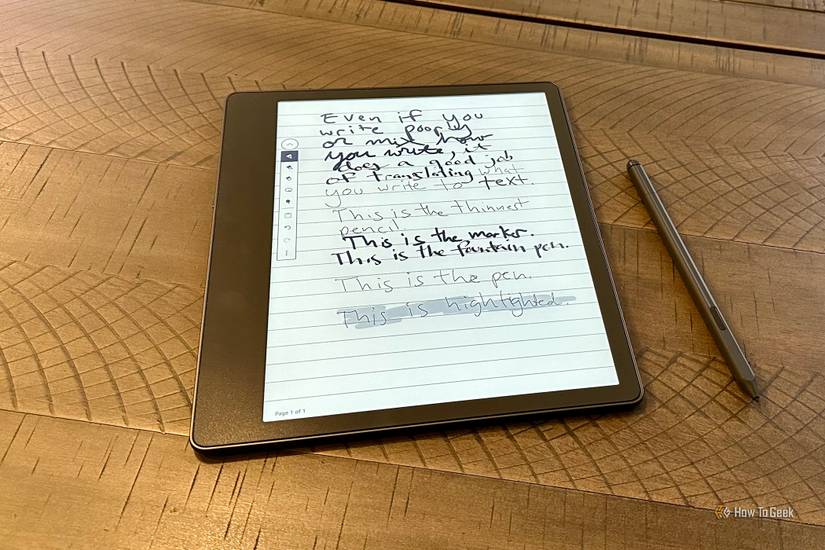 Even if you
write poorly
or mix how
you write, it
does a good job
of translating what
you write to text.
This is the thinnest
pencil.
This is the marker.
This is the fountain pen.
This is the pen.
This is highlighted.
Page 1 of 1
How To Geek